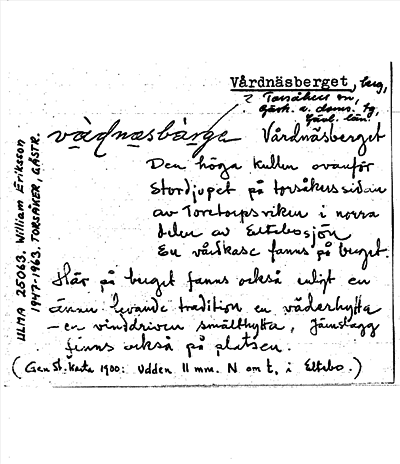 Vårdnäsberget, berg,
Torsåkers sn,
Gästr. ö. doms. tg,
Gävl. län.
vårdnäsbärge Vårdnäsberget
Den höga kullen ovanför
Stordjupet på torsåkerssidan
av Toretorpsviken i norra
delen av Eltebosjön
En vårdkase fanns på berget.
Här på berget fanns också enligt en
ännu levande tradition en väderhytta
– en vinddriven smälthytta, Järnslagg
finns också på platsen.
(Gen St. karta 1900: Udden 11 mm. N om t, i Eltebo.)
ULMA 25063. William Eriksson
1947-1963. TORSÅKER, GÄSTR.